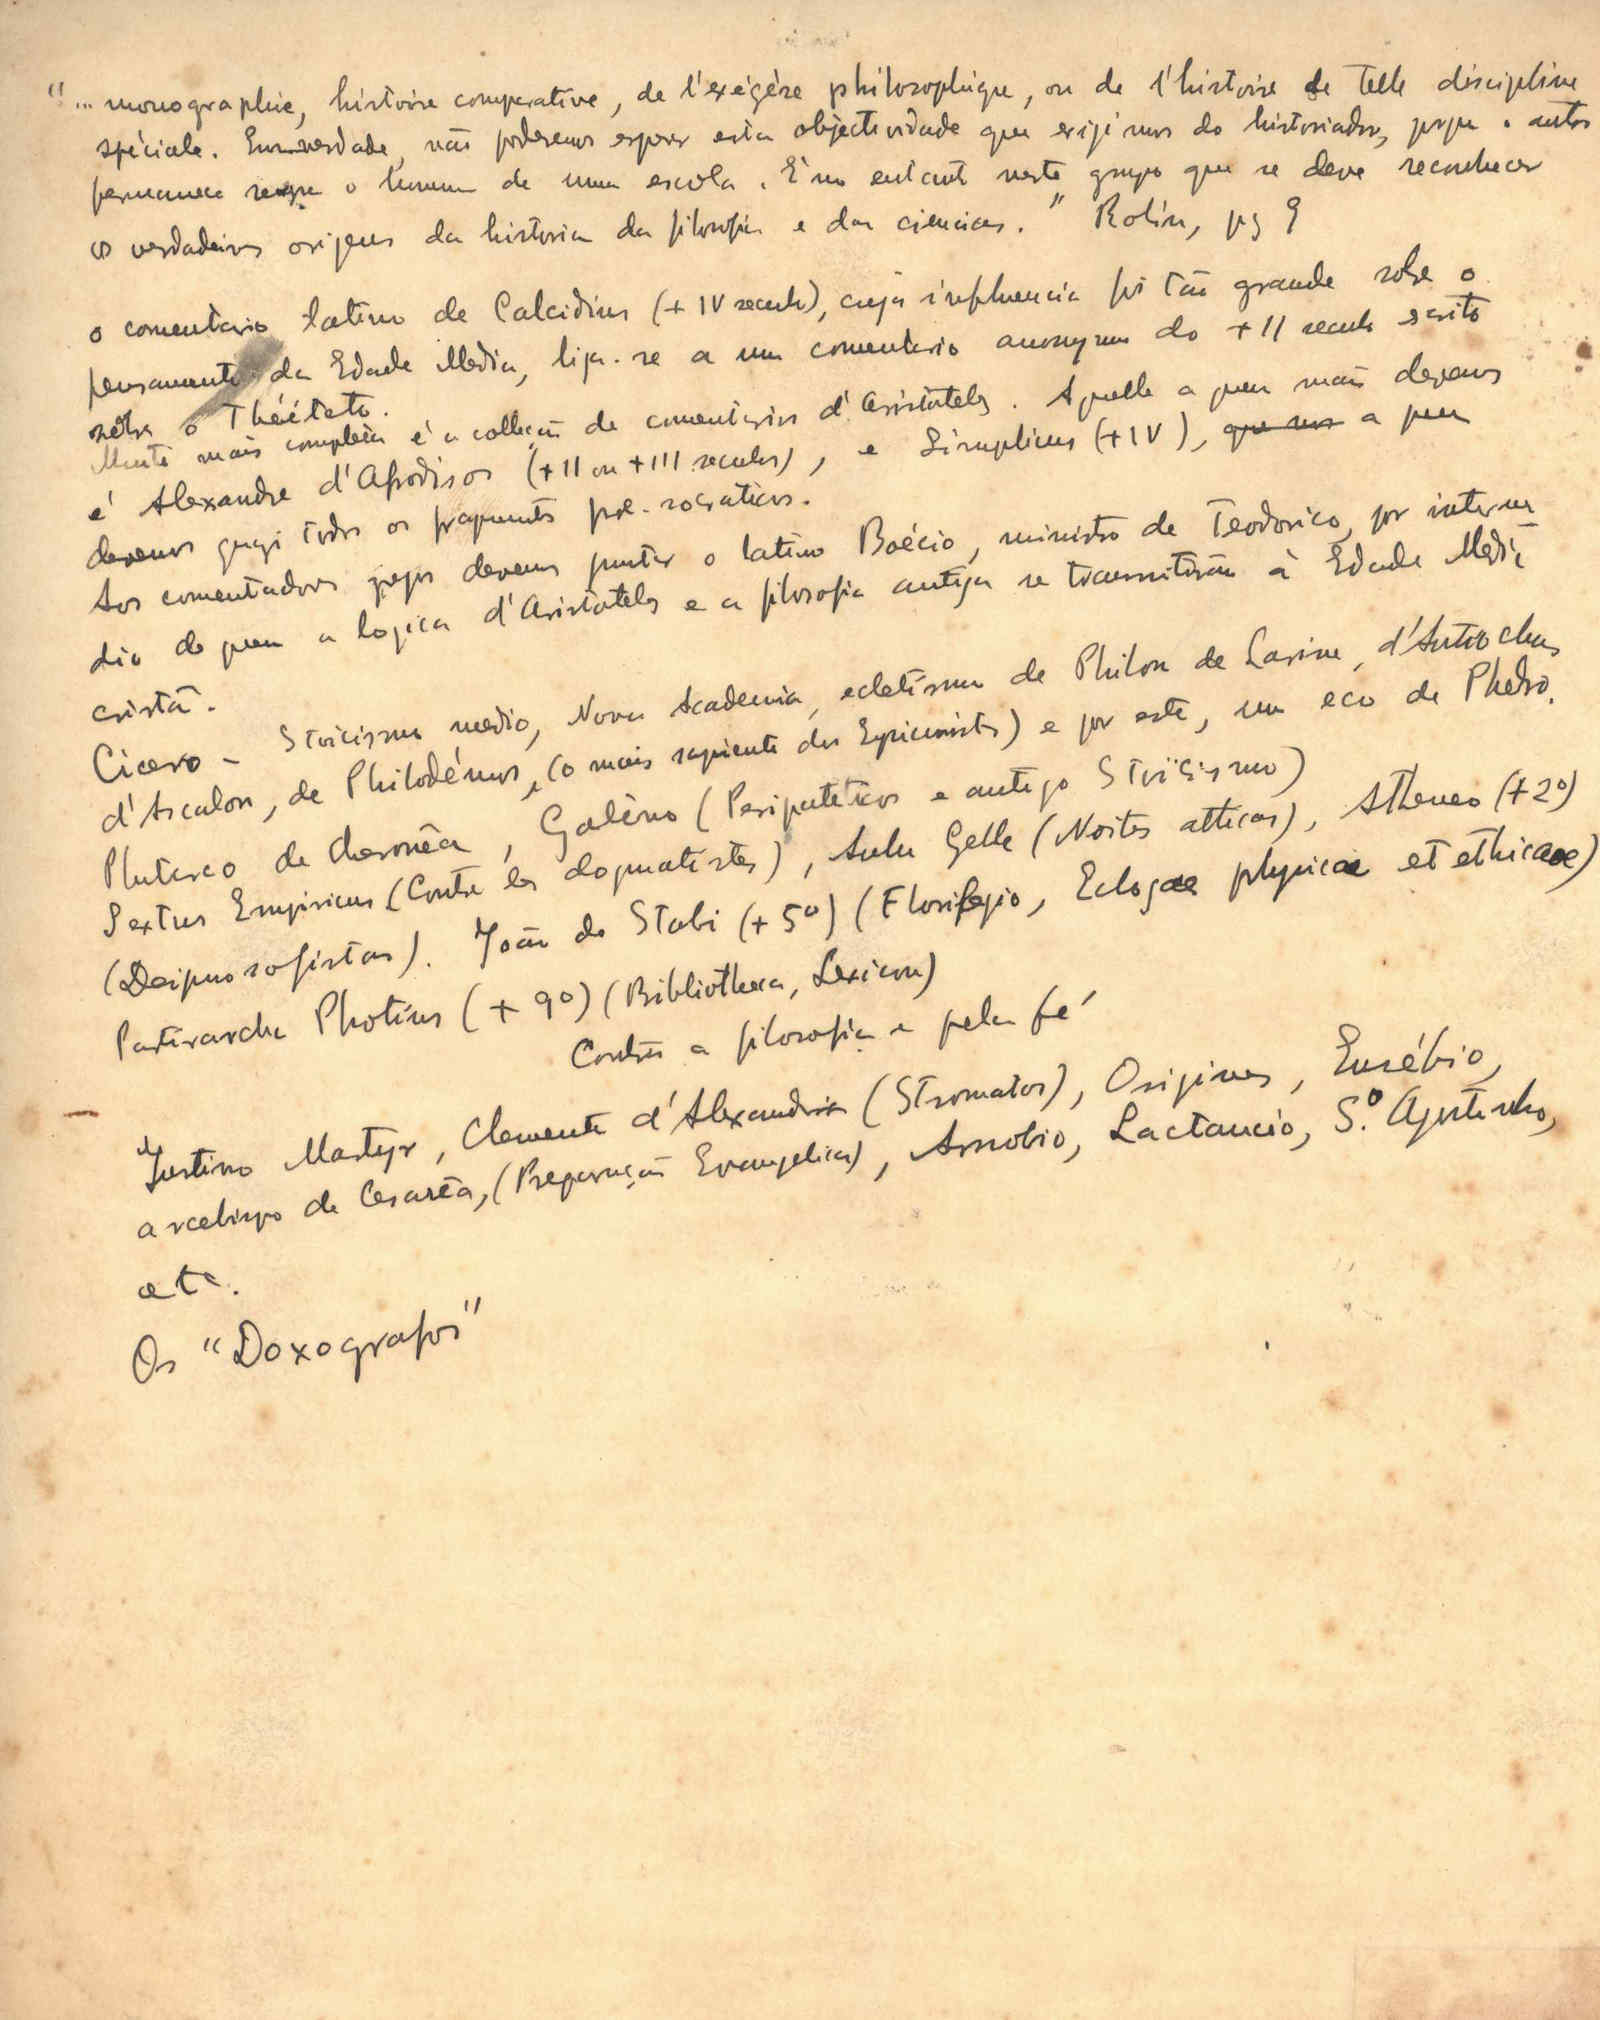 "... monographie, histoire comparative, de l'exégèse philosophique, ou de l'histoire de telle discipline
spéciale. Em verdade, não poderemos esperar esta objectividade que exigimos do historiador, porque o autor
permanece sempre o homem de uma escola. É no entanto neste grupo que se deve reconhecer
as verdadeiras origens da historia da filosofia e das ciencias." Robin, pg 9
o comentario latino de Calcidius (+ IV seculo), cuja influencia foi tão grande sobre o
pensamento da Edade Media, liga-se a um comentario anonymo do + II seculo escrito
sobre o Thééteto.
Muito mais completa é a colleção de comentarios d'Aristoteles. Aquelle a quem mais devemos
é Alexandre d'Afrodisos (+ II ou + III seculos), e Simplicius (+ IV), que nos a quem
devemos quasi todos os fragmentos pre-socraticos.
Aos comentadores gregos devemos juntar o latino Boécio, ministro de Teodorico, por interme
dio de quem a logica d'Aristoteles e a filosofia antiga se transmitirão à Edade Media
cristã.
Cicero - Stoicismo medio, Nova Academia, ecletismo de Philon de Larine, d'Antiochus
d'Ascalon, de Philodémus, (o mais sapiente dos Epicuristas) e por este, um eco de Phedro.
Plutarco de Cheronêa, Galêno (Peripateticos e antigo Stoïcismo)
Sextus Empiricus (Contra os dogmatistas), Aulu Gelle (Noites atticas), Atheneo (+ 2º)
(Deipnosofistas). João de Stobi (+ 5º) (Florilegio, Eclogae physicae et ethicae)
Patirarcha Photius (+ 9º) (Bibliotheca, Lexicon)
Contra a filosofia e pela fé
Justino Martyr, Clemente d'Alexandria (Stromatos), Origines, Eusébio,
arcebispo de Cesarêa, (Preparação Evangelica), Arnobio, Lactancio, S.º Agostinho,
etc.
Os "Doxografos"